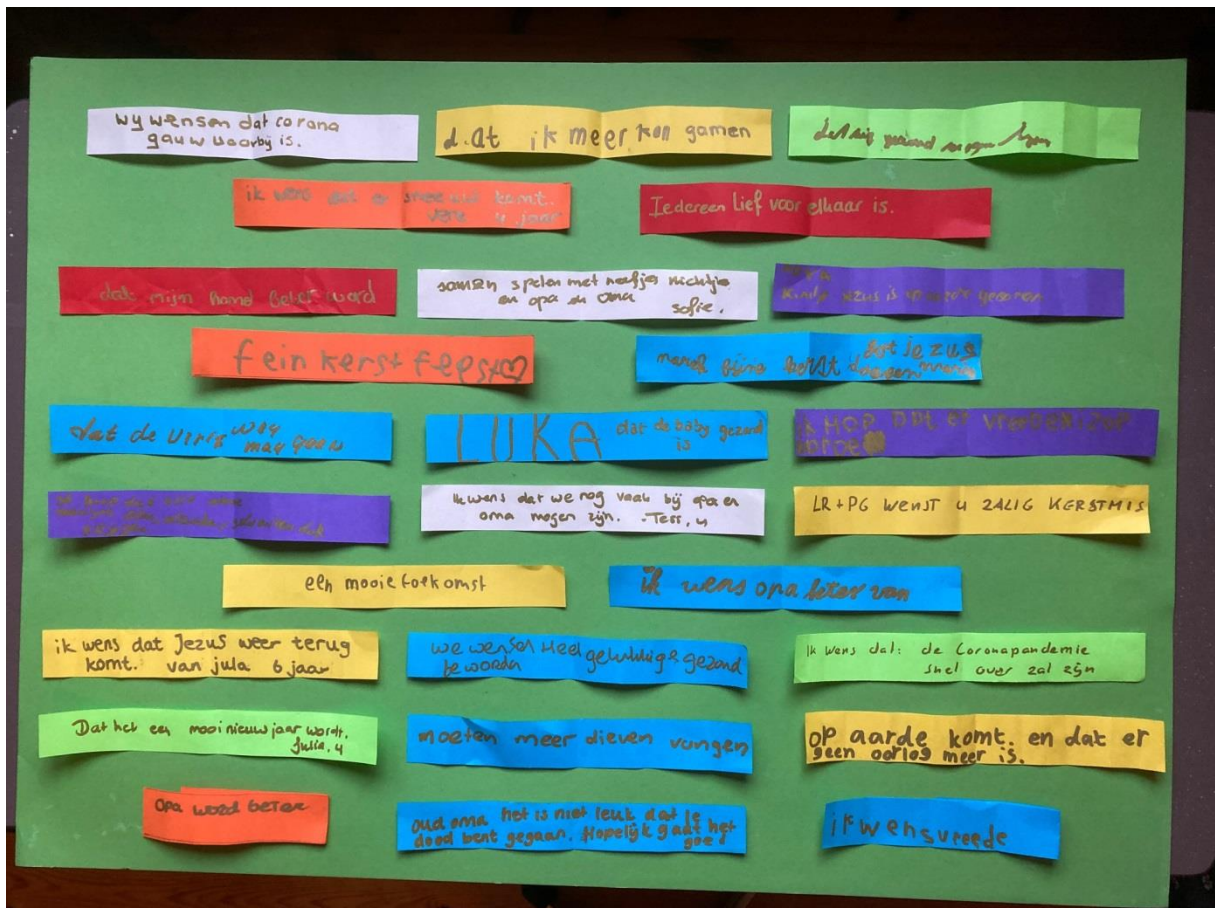 wy wensen dat corona
gauw voorby is.
d.at ik meer kon gamen
ik wens dat er sneeuw komt.
vera 4 jaar
Iedereen lief voor elkaar is.
dat mijn hand beter word
samen spelen met neefjes nichtje
en opa en oma
sofie.
kindje Jezus is geboren
fein kerst feest
dat jezus
dat de virus weg
mag gaan
LUKA dat de baby gezond
is
IK HOP DAT ER VREEDE
Ik wens dat we nog vaak bij opa en
oma mogen zijn. -Tess, 4
LR+PG WENST U ZALIG KERSTMIS
een mooie toekomst
ik wens opa beter van
ik wens dat Jezus weer terug
komt. van jula 6 jaar
we wensen heel gelukkig & gezond
te worden
Ik wens dat: de Coronapandemie
snel over zal zijn
Dat het een mooi nieuwjaar wordt.
Julia, 4
moeten meer dieven vangen
op aarde komt. en dat er
geen oorlog meer is.
opa word beter
oud oma het is niet leuk dat je
dood bent gegaan. Hopelijk gaat het
goe
ik wens vreede